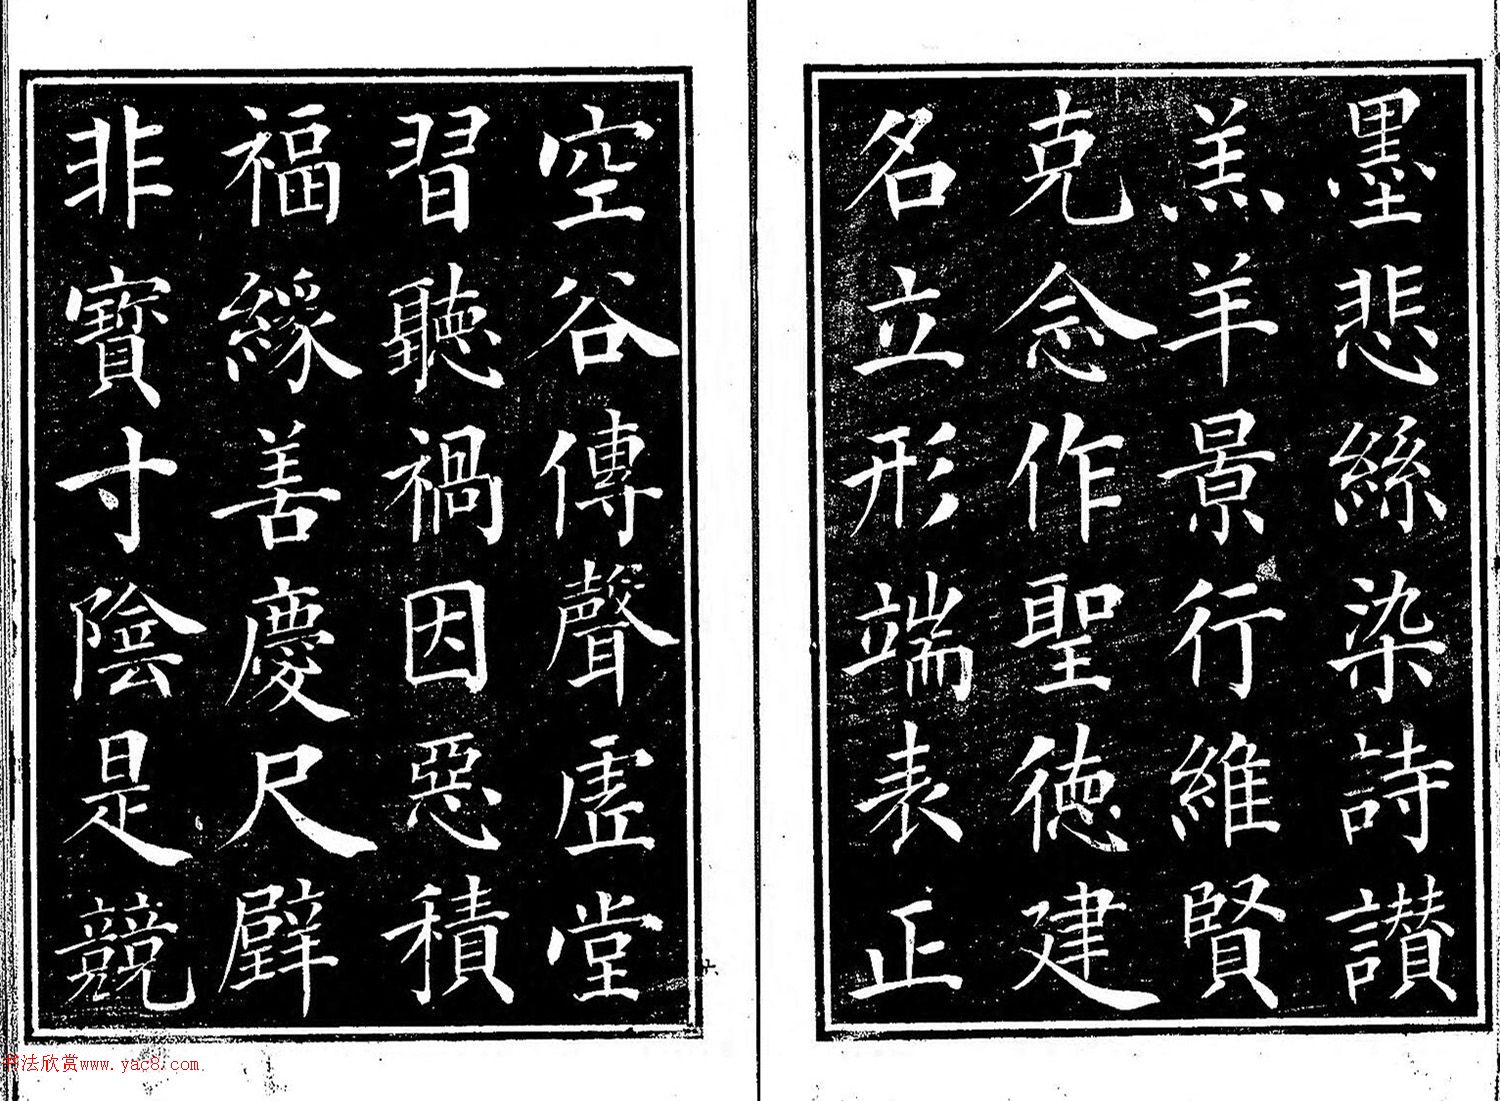 墨悲絲染詩讃
羔羊景行維賢
克念作聖德建
名立形端表正
空谷傳聲虛堂
習聽禍因惡積
福緣善慶尺璧
非寶寸陰是競
书法欣赏www.yac8.com